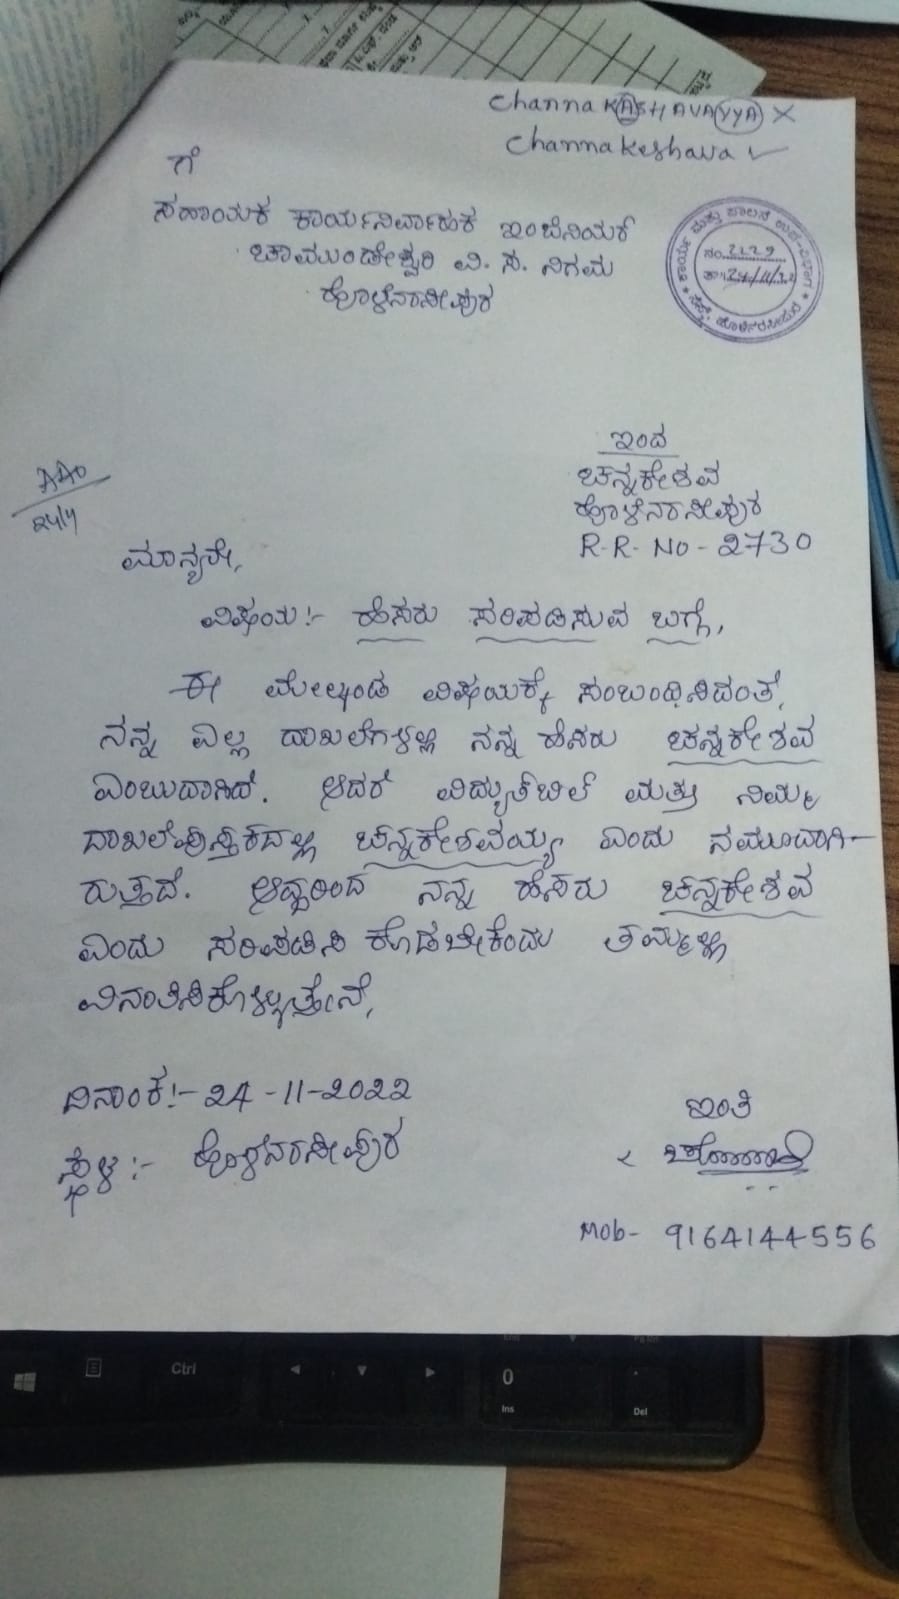 Channa KASHAVAYYA ×
Channa Keshava ✓
ಗೆ
ಸಹಾಯಕ ಕಾರ್ಯನಿರ್ವಾಹಕ ಇಂಜಿನಿಯರ್
ಚಾಮುಂಡೇಶ್ವರಿ ವಿ. ಸ. ನಿಗಮ
ಹೊಳೆನರಸೀಪುರ
ಕಾರ್ಯ ಮತ್ತು ಪಾಲನ ಉಪ-ವಿಭಾಗ
ನಂ. 2229
ತಾ: 24/11/22
ಹೊಳೆನರಸೀಪುರ
ಇಂದ
ಚನ್ನಕೇಶವ
ಹೊಳೆನರಸೀಪುರ
R.R. No - 2730
AAO
24/11
ಮಾನ್ಯರೇ,
ವಿಷಯ:- ಹೆಸರು ಸರಿಪಡಿಸುವ ಬಗ್ಗೆ,
ಈ ಮೇಲ್ಕಂಡ ವಿಷಯಕ್ಕೆ ಸಂಬಂಧಿಸಿದಂತೆ,
ನನ್ನ ಎಲ್ಲ ದಾಖಲೆಗಳಲ್ಲಿ ನನ್ನ ಹೆಸರು ಚನ್ನಕೇಶವ
ಎಂಬುದಾಗಿದೆ. ಆದರೆ ವಿದ್ಯುತ್‌ಬಿಲ್ ಮತ್ತು ನಿಮ್ಮ
ದಾಖಲೆಪುಸ್ತಕದಲ್ಲಿ ಚನ್ನಕೇಶವಯ್ಯ ಎಂದು ನಮೂದಾಗಿ-
ರುತ್ತದೆ. ಆದ್ದರಿಂದ ನನ್ನ ಹೆಸರು ಚನ್ನಕೇಶವ
ಎಂದು ಸರಿಪಡಿಸಿ ಕೊಡಬೇಕೆಂದು ತಮ್ಮಲ್ಲಿ
ವಿನಂತಿಸಿಕೊಳ್ಳುತ್ತೇನೆ,
ದಿನಾಂಕ:- 24-11-2022
ಸ್ಥಳ:- ಹೊಳೆನರಸೀಪುರ
ಇಂತಿ
Mob- 9164144556
Ctrl
0
Ins
.
Del